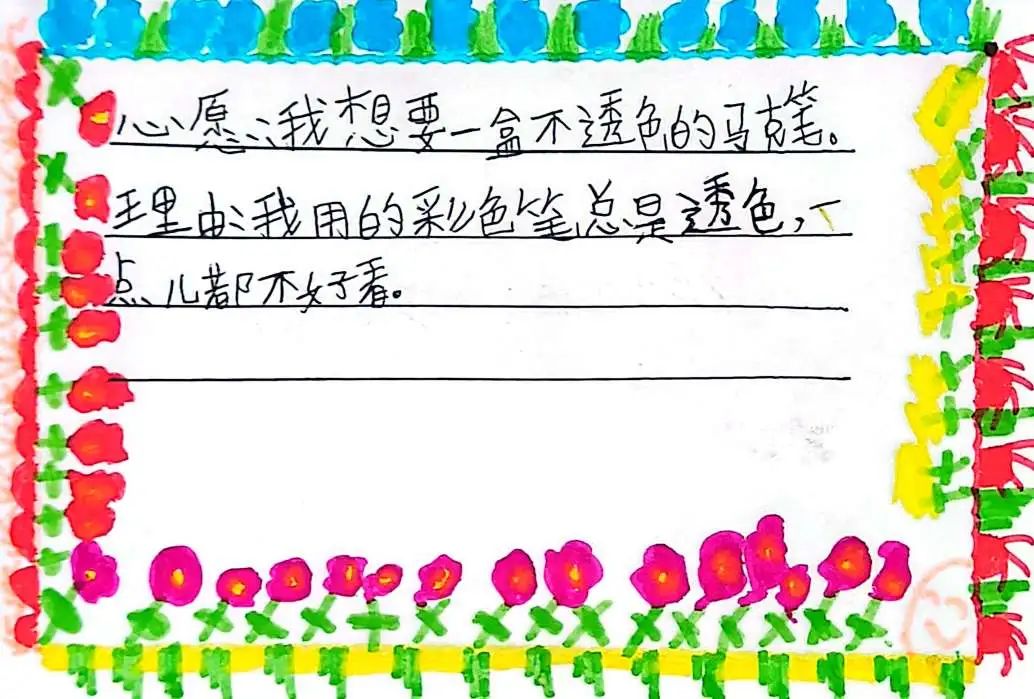 心愿:我想要一盒不透色的马克笔。
理由:我用的彩色笔总是透色,一
点儿都不好看。